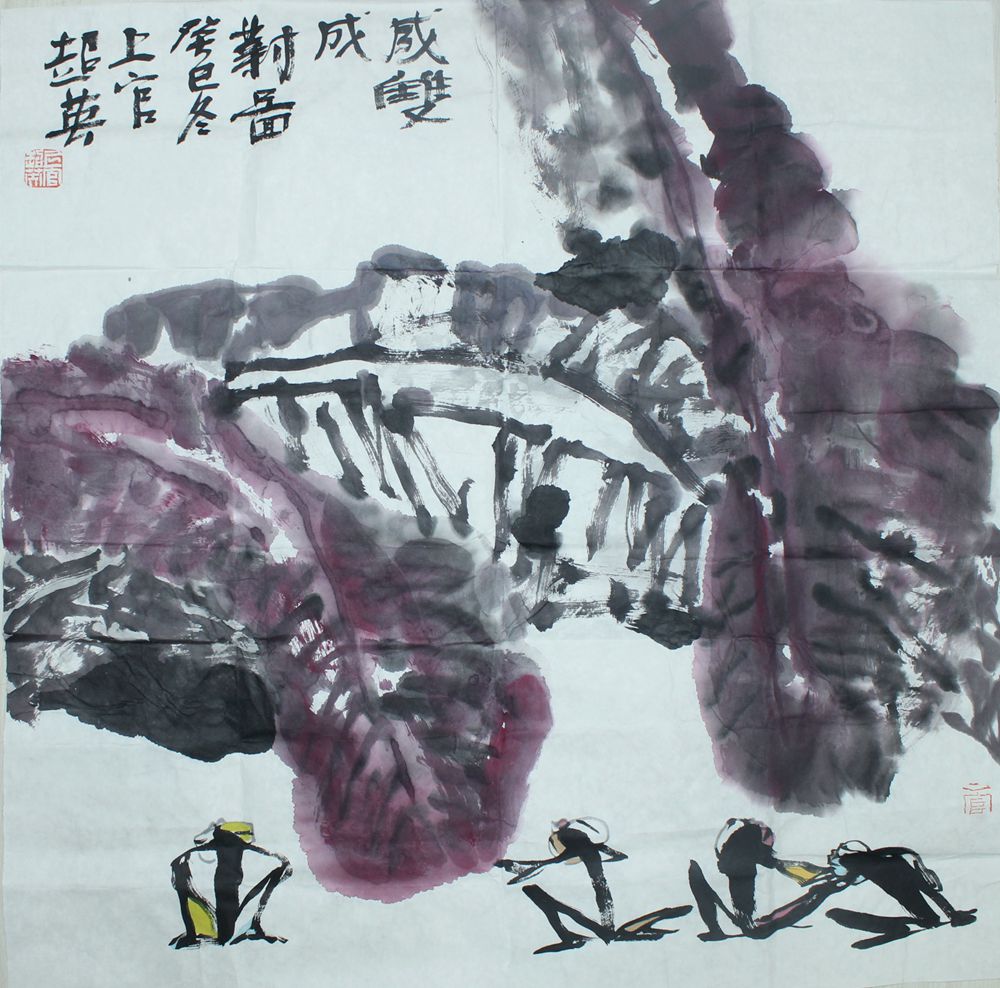 成雙
成
對圖
癸巳冬
上官
超英